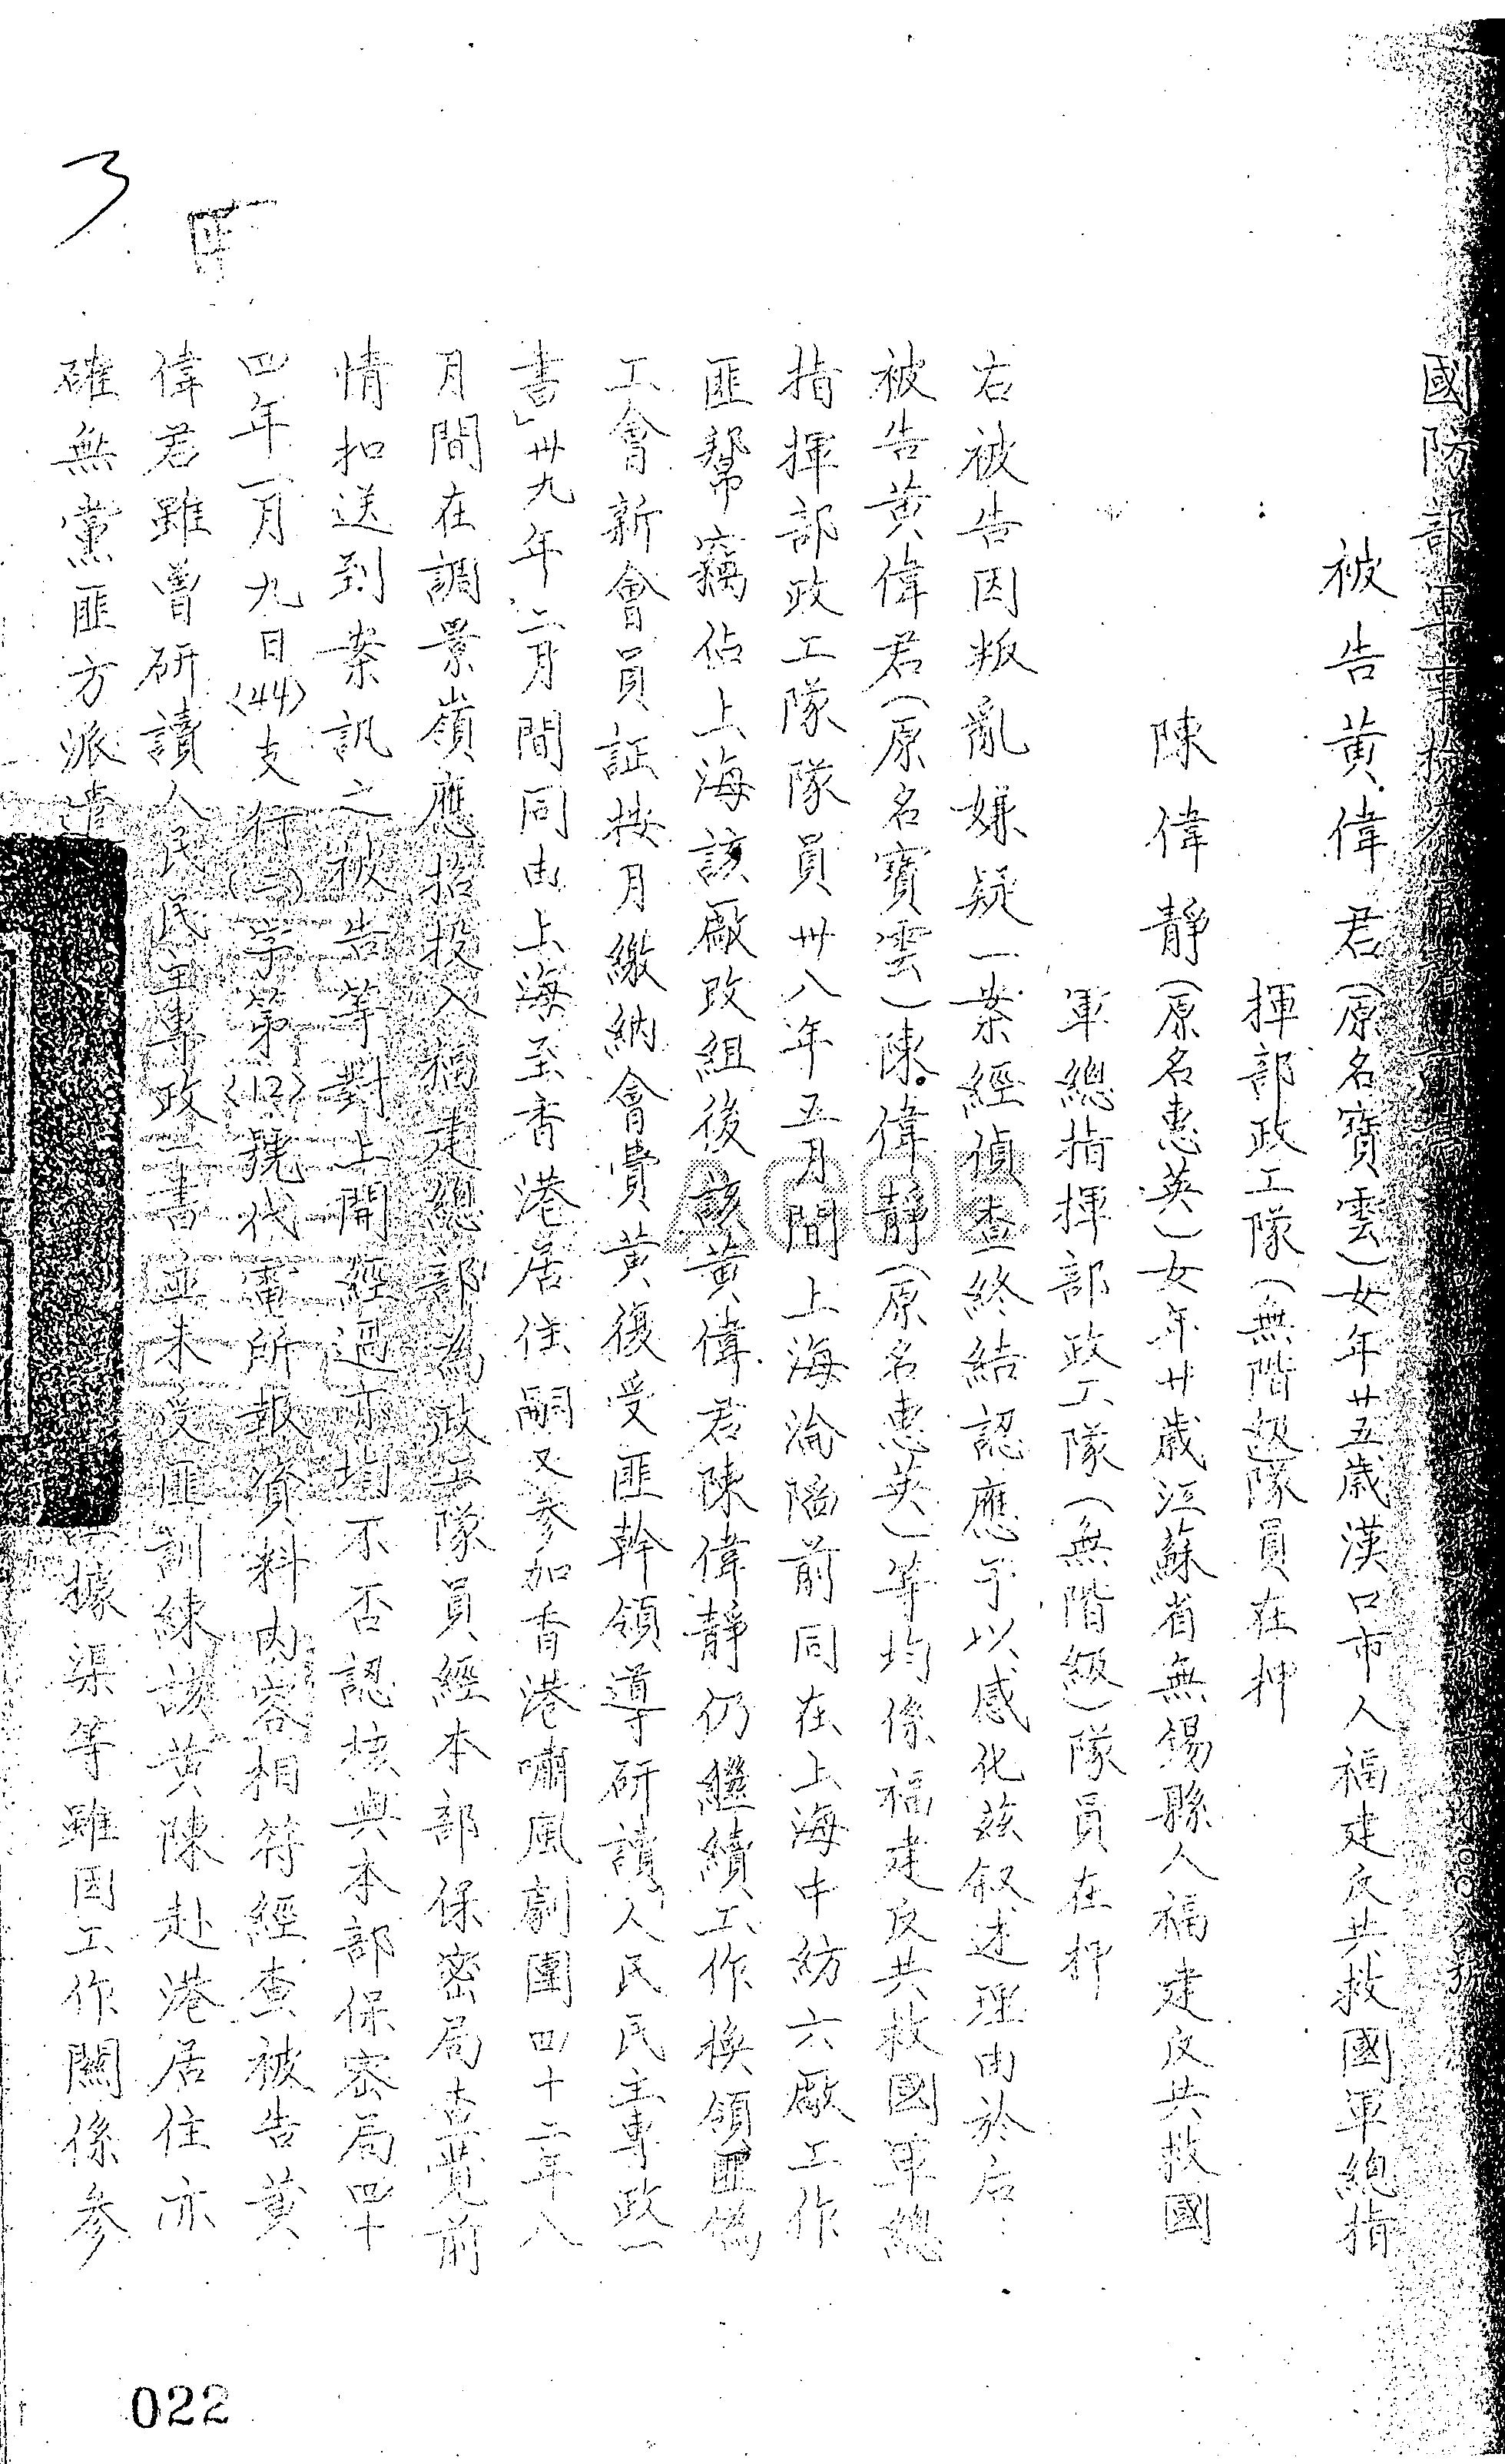 國防部軍事檢察官
被告黃偉君(原名寶雲)女年廿五歲漢口市人福建反共救國軍總指
揮部政工隊(無階級)隊員在押
陳偉靜(原名惠英)女年廿歲江蘇省無錫縣人福建反共救國
軍總指揮部政工隊(無階級)隊員在押
右被告因叛亂嫌疑一案經偵查終結認應予以感化茲叙述理由於后
被告黃偉君(原名寶雲)陳偉靜(原名惠英)等均係福建反共救國軍總
指揮部政工隊隊員卅八年五月間上海淪陷前同在上海中紡六廠工作
匪幫竊佔上海該廠改組後該黃偉君陳偉靜仍繼續工作換領匪偽
工會新會員証按月繳納會費黃復受匪幹領導研讀「人民民主專政一
書」卅九年二月間同由上海至香港居住嗣又參加香港嘯風劇團四十二年八
月間在調景嶺應招投入福建總部為政工隊員經本部保密局查覺前
情扣送到案訊之被告等對上開經過亦均不否認核與本部保密局四十
四年一月九日(44)支行(二)字第(12)號代電所報資料內容相符經查被告黃
偉君雖曾研讀人民民主專政一書並未受匪訓練該黃陳赴港居住亦
確無黨匪方派遣 據渠等雖因工作關係參
022